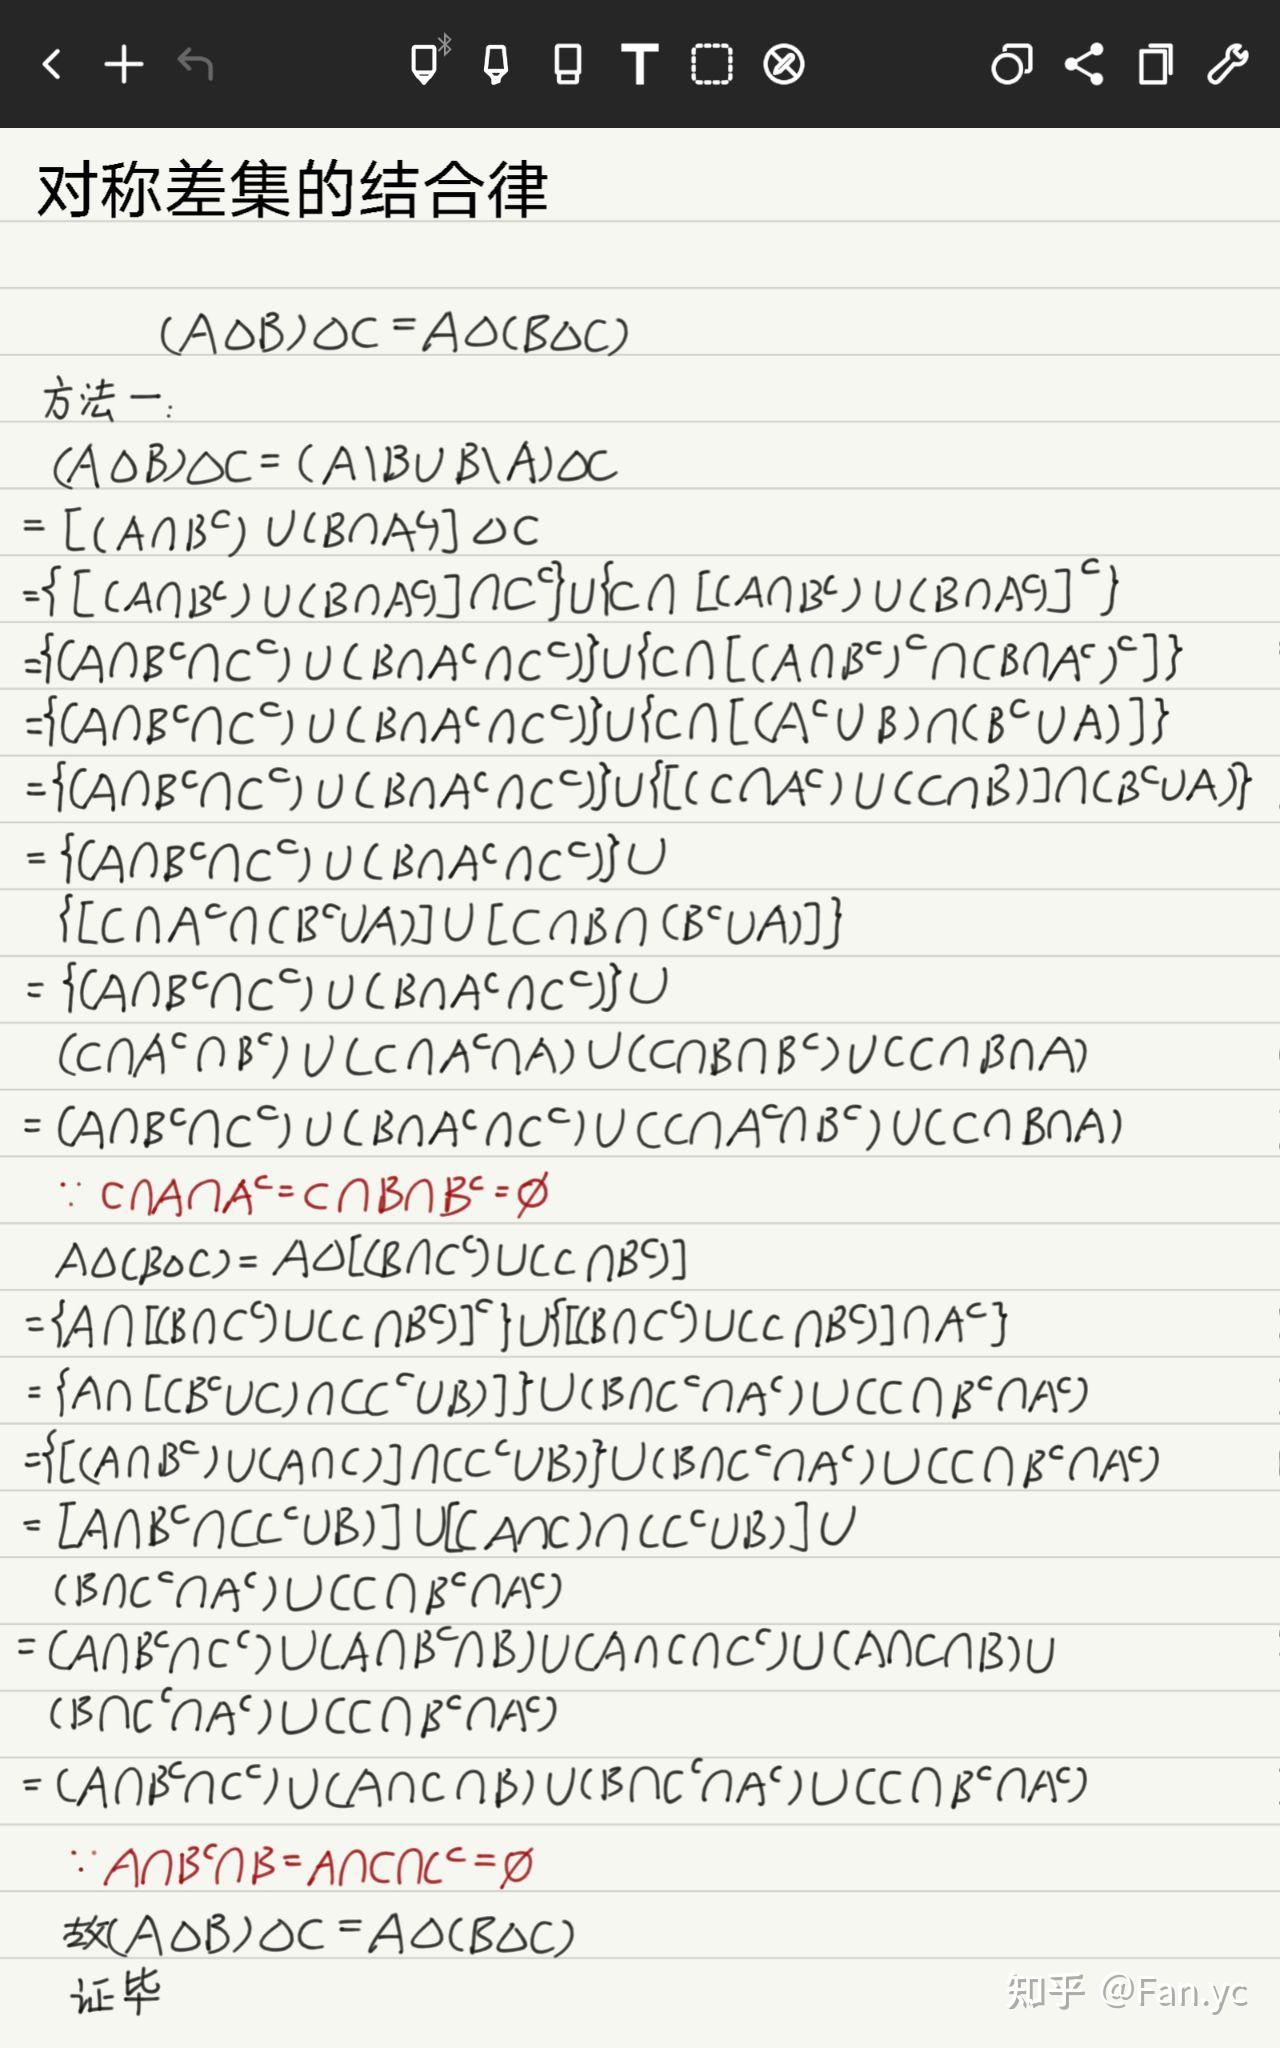 对称差集的结合律
(A△B)△C=A△(B△C)
方法一:
(A△B)△C=(A\B∪B\A)△C
=[(A∩Bᶜ)∪(B∩Aᶜ)]△C
={[(A∩Bᶜ)∪(B∩Aᶜ)]∩Cᶜ}∪{C∩[(A∩Bᶜ)∪(B∩Aᶜ)]ᶜ}
={(A∩Bᶜ∩Cᶜ)∪(B∩Aᶜ∩Cᶜ)}∪{C∩[(A∩Bᶜ)ᶜ∩(B∩Aᶜ)ᶜ]}
={(A∩Bᶜ∩Cᶜ)∪(B∩Aᶜ∩Cᶜ)}∪{C∩[(Aᶜ∪B)∩(Bᶜ∪A)]}
={(A∩Bᶜ∩Cᶜ)∪(B∩Aᶜ∩Cᶜ)}∪{[(C∩Aᶜ)∪(C∩B)]∩(Bᶜ∪A)}
={(A∩Bᶜ∩Cᶜ)∪(B∩Aᶜ∩Cᶜ)}∪
{[C∩Aᶜ∩(Bᶜ∪A)]∪[C∩B∩(Bᶜ∪A)]}
={(A∩Bᶜ∩Cᶜ)∪(B∩Aᶜ∩Cᶜ)}∪
(C∩Aᶜ∩Bᶜ)∪(C∩Aᶜ∩A)∪(C∩B∩Bᶜ)∪(C∩B∩A)
=(A∩Bᶜ∩Cᶜ)∪(B∩Aᶜ∩Cᶜ)∪(C∩Aᶜ∩Bᶜ)∪(C∩B∩A)
∵ C∩A∩Aᶜ=C∩B∩Bᶜ=∅
A△(B△C)=A△[(B∩Cᶜ)∪(C∩Bᶜ)]
={A∩[(B∩Cᶜ)∪(C∩Bᶜ)]ᶜ}∪{[(B∩Cᶜ)∪(C∩Bᶜ)]∩Aᶜ}
={A∩[(Bᶜ∪C)∩(Cᶜ∪B)]}∪(B∩Cᶜ∩Aᶜ)∪(C∩Bᶜ∩Aᶜ)
={[(A∩Bᶜ)∪(A∩C)]∩(Cᶜ∪B)}∪(B∩Cᶜ∩Aᶜ)∪(C∩Bᶜ∩Aᶜ)
=[A∩Bᶜ∩(Cᶜ∪B)]∪[(A∩C)∩(Cᶜ∪B)]∪
(B∩Cᶜ∩Aᶜ)∪(C∩Bᶜ∩Aᶜ)
=(A∩Bᶜ∩Cᶜ)∪(A∩Bᶜ∩B)∪(A∩C∩Cᶜ)∪(A∩C∩B)∪
(B∩Cᶜ∩Aᶜ)∪(C∩Bᶜ∩Aᶜ)
=(A∩Bᶜ∩Cᶜ)∪(A∩C∩B)∪(B∩Cᶜ∩Aᶜ)∪(C∩Bᶜ∩Aᶜ)
∵ A∩Bᶜ∩B=A∩C∩Cᶜ=∅
故(A△B)△C=A△(B△C)
证毕
知乎 @Fan.yc